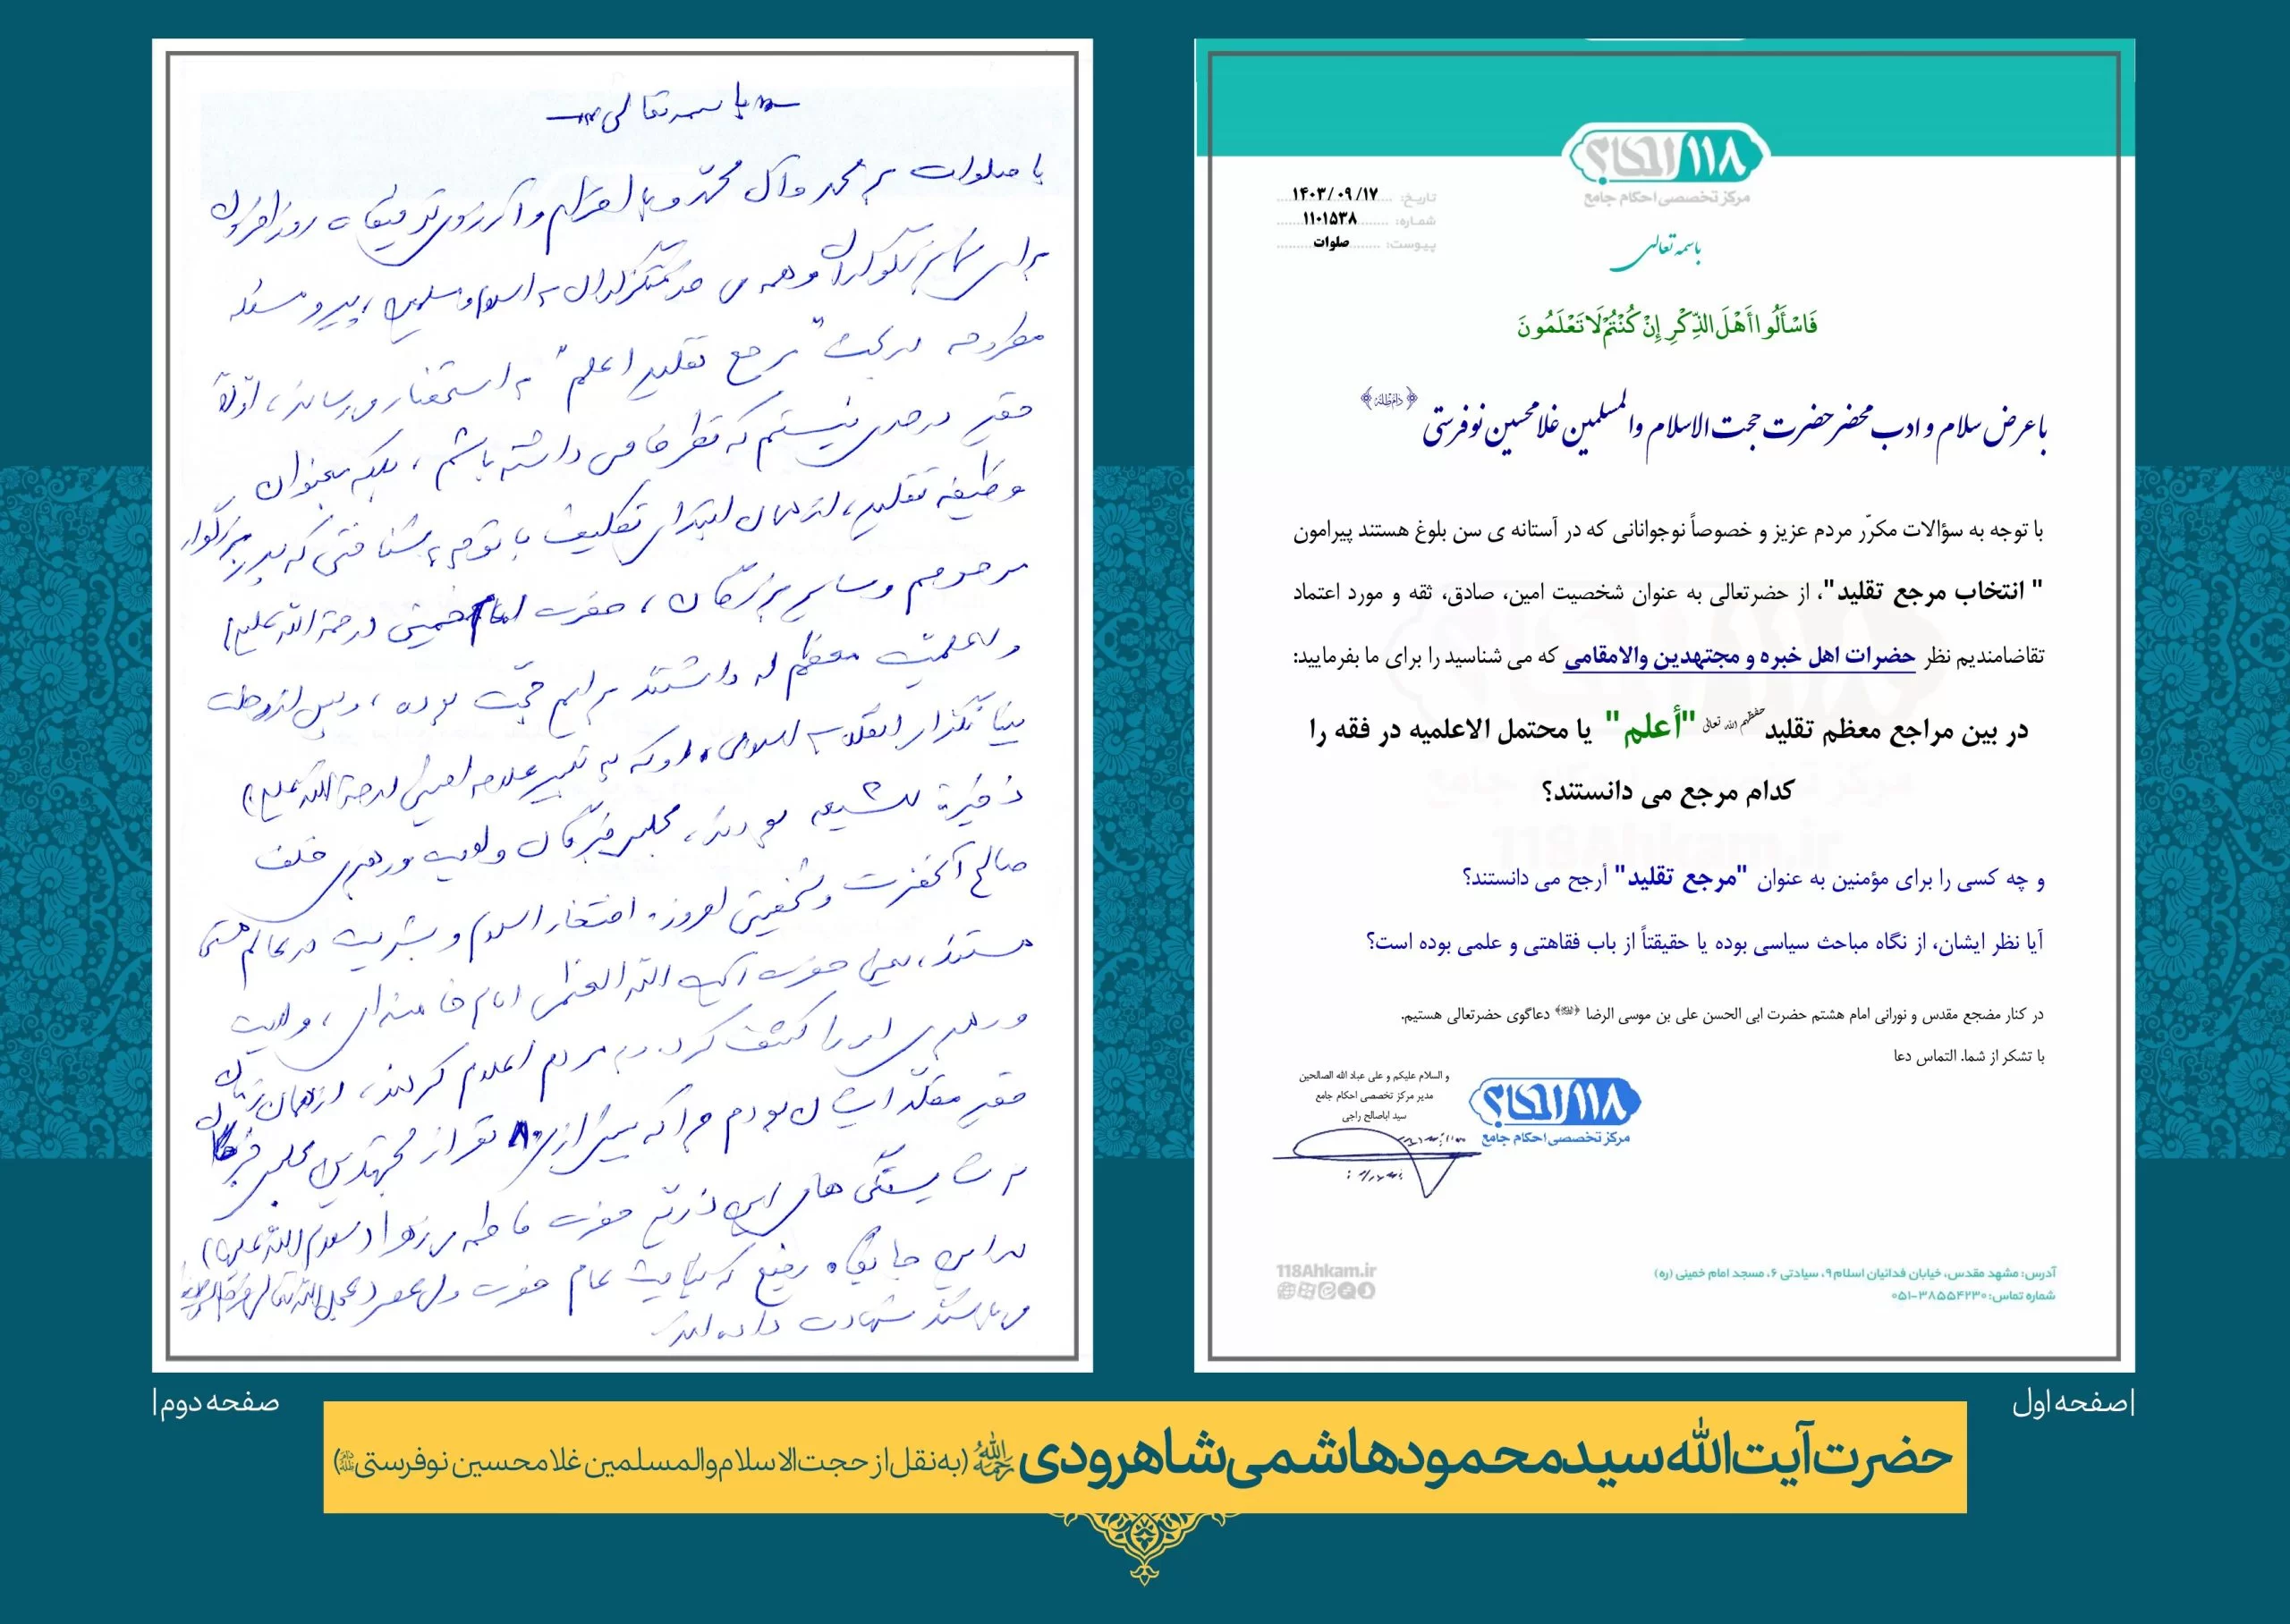 ۱۱۸ احکام؟
مرکز تخصصی احکام جامع
تاریخ: ۱۴۰۳/۰۹/۱۷
شماره: ۱۱۰۱۵۳۸
پیوست: صلوات
باسمه تعالی
فَاسْأَلُوا أَهْلَ الذِّكْرِ إِنْ كُنْتُمْ لَا تَعْلَمُونَ
با عرض سلام و ادب محضر حضرت حجت الاسلام والمسلمین غلامحسین نوفرستی ﴿دام ظله﴾
با توجه به سؤالات مکرّر مردم عزیز و خصوصاً نوجوانانی که در آستانه ی سن بلوغ هستند پیرامون
" انتخاب مرجع تقلید"، از حضرتعالی به عنوان شخصیت امین، صادق، ثقه و مورد اعتماد
تقاضامندیم نظر حضرات اهل خبره و مجتهدین والامقامی که می شناسید را برای ما بفرمایید:
در بین مراجع معظم تقلید حفظهم الله تعالی "أعلم" یا محتمل الاعلمیه در فقه را
کدام مرجع می دانستند؟
و چه کسی را برای مؤمنین به عنوان "مرجع تقلید" أرجح می دانستند؟
آیا نظر ایشان، از نگاه مباحث سیاسی بوده یا حقیقتاً از باب فقاهتی و علمی بوده است؟
در کنار مضجع مقدس و نورانی امام هشتم حضرت ابی الحسن علی بن موسی الرضا دعاگوی حضرتعالی هستیم.
با تشکر از شما. التماس دعا
و السلام علیکم و علی عباد الله الصالحین
مدیر مرکز تخصصی احکام جامع
سید اباصالح راجی
۱۱۸ احکام؟
مرکز تخصصی احکام جامع
118Ahkam.ir
آدرس: مشهد مقدس، خیابان فدائیان اسلام ۹، سیادتی ۶، مسجد امام خمینی (ره)
شماره تماس: ۳۸۵۵۴۲۳۰-۰۵۱
مرکز تخصصی احکام جامع
118Ahkam.ir
|صفحه اول
باسمه تعالی
با صلوات بر محمد و آل محمد و با احترام و آرزوی توفیقات روزافزون
برای شما بزرگواران و همه ی خدمتگزاران به اسلام و مسلمین، پیرو مسئله
مطروحه در بحث "مرجع تقلید اعلم" به استحضار می رساند، اولاً
حقیر در حدی نیستم که نظر خاصی داشته باشم، بلکه بعنوان
وظیفه تقلید، از همان ابتدای تکلیف با توجه به شناختی که پدر بزرگوار
مرحومم و سایر بزرگان، حضرت امام خمینی (رحمة الله علیه)
و اعلمیت معظم له داشتند برایم حجّت بوده، و پس از رحلت
بنیانگزار انقلاب اسلامی، او که به تعبیر علامه امینی (رحمة الله علیه)
ذخیرة للشیعه بودند، مجلس خبرگان ولایت و رهبری خلف
صالح آنحضرت و شخصیتی امروز، افتخار اسلام و بشریت در عالم هستی
هستند، یعنی حضرت آیت الله العظمی امام خامنه ای، ولایت
و رهبری او را کشف کرده و به مردم اعلام کردند، از همان زمان
حقیر مقلد ایشان بودم چرا که بیش از ۸۰ نفر از مجتهدین مجلس خبرگان
به شایستگی های این ذریه حضرت فاطمه ی زهرا (سلام الله علیها)
در این جایگاه رفیع که نیابت عام حضرت ولی عصر (عجل الله تعالی فرجه الشریف)
می باشند شهادت داده اند
صفحه دوم|
حضرت آیت الله سید محمود هاشمی شاهرودی رحمه الله (به نقل از حجت الاسلام والمسلمین غلامحسین نوفرستی)